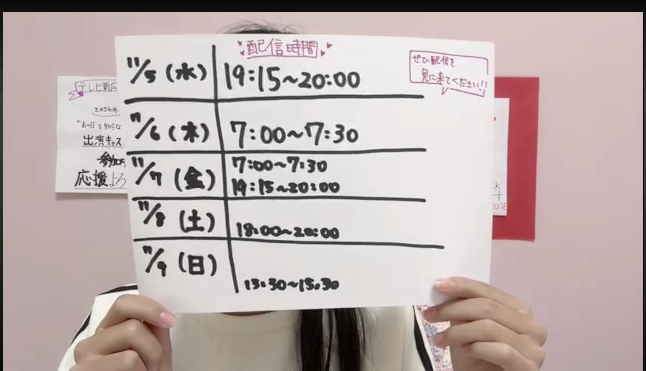 配信時間
ぜひ配信を
見に来てください!!
11/5(水) 19:15~20:00
11/6(木) 7:00~7:30
11/7(金) 7:00~7:30
19:15~20:00
11/8(土) 18:00~20:00
11/9(日) 13:30~15:30
テレビ新広
出演キャス
応援よろ